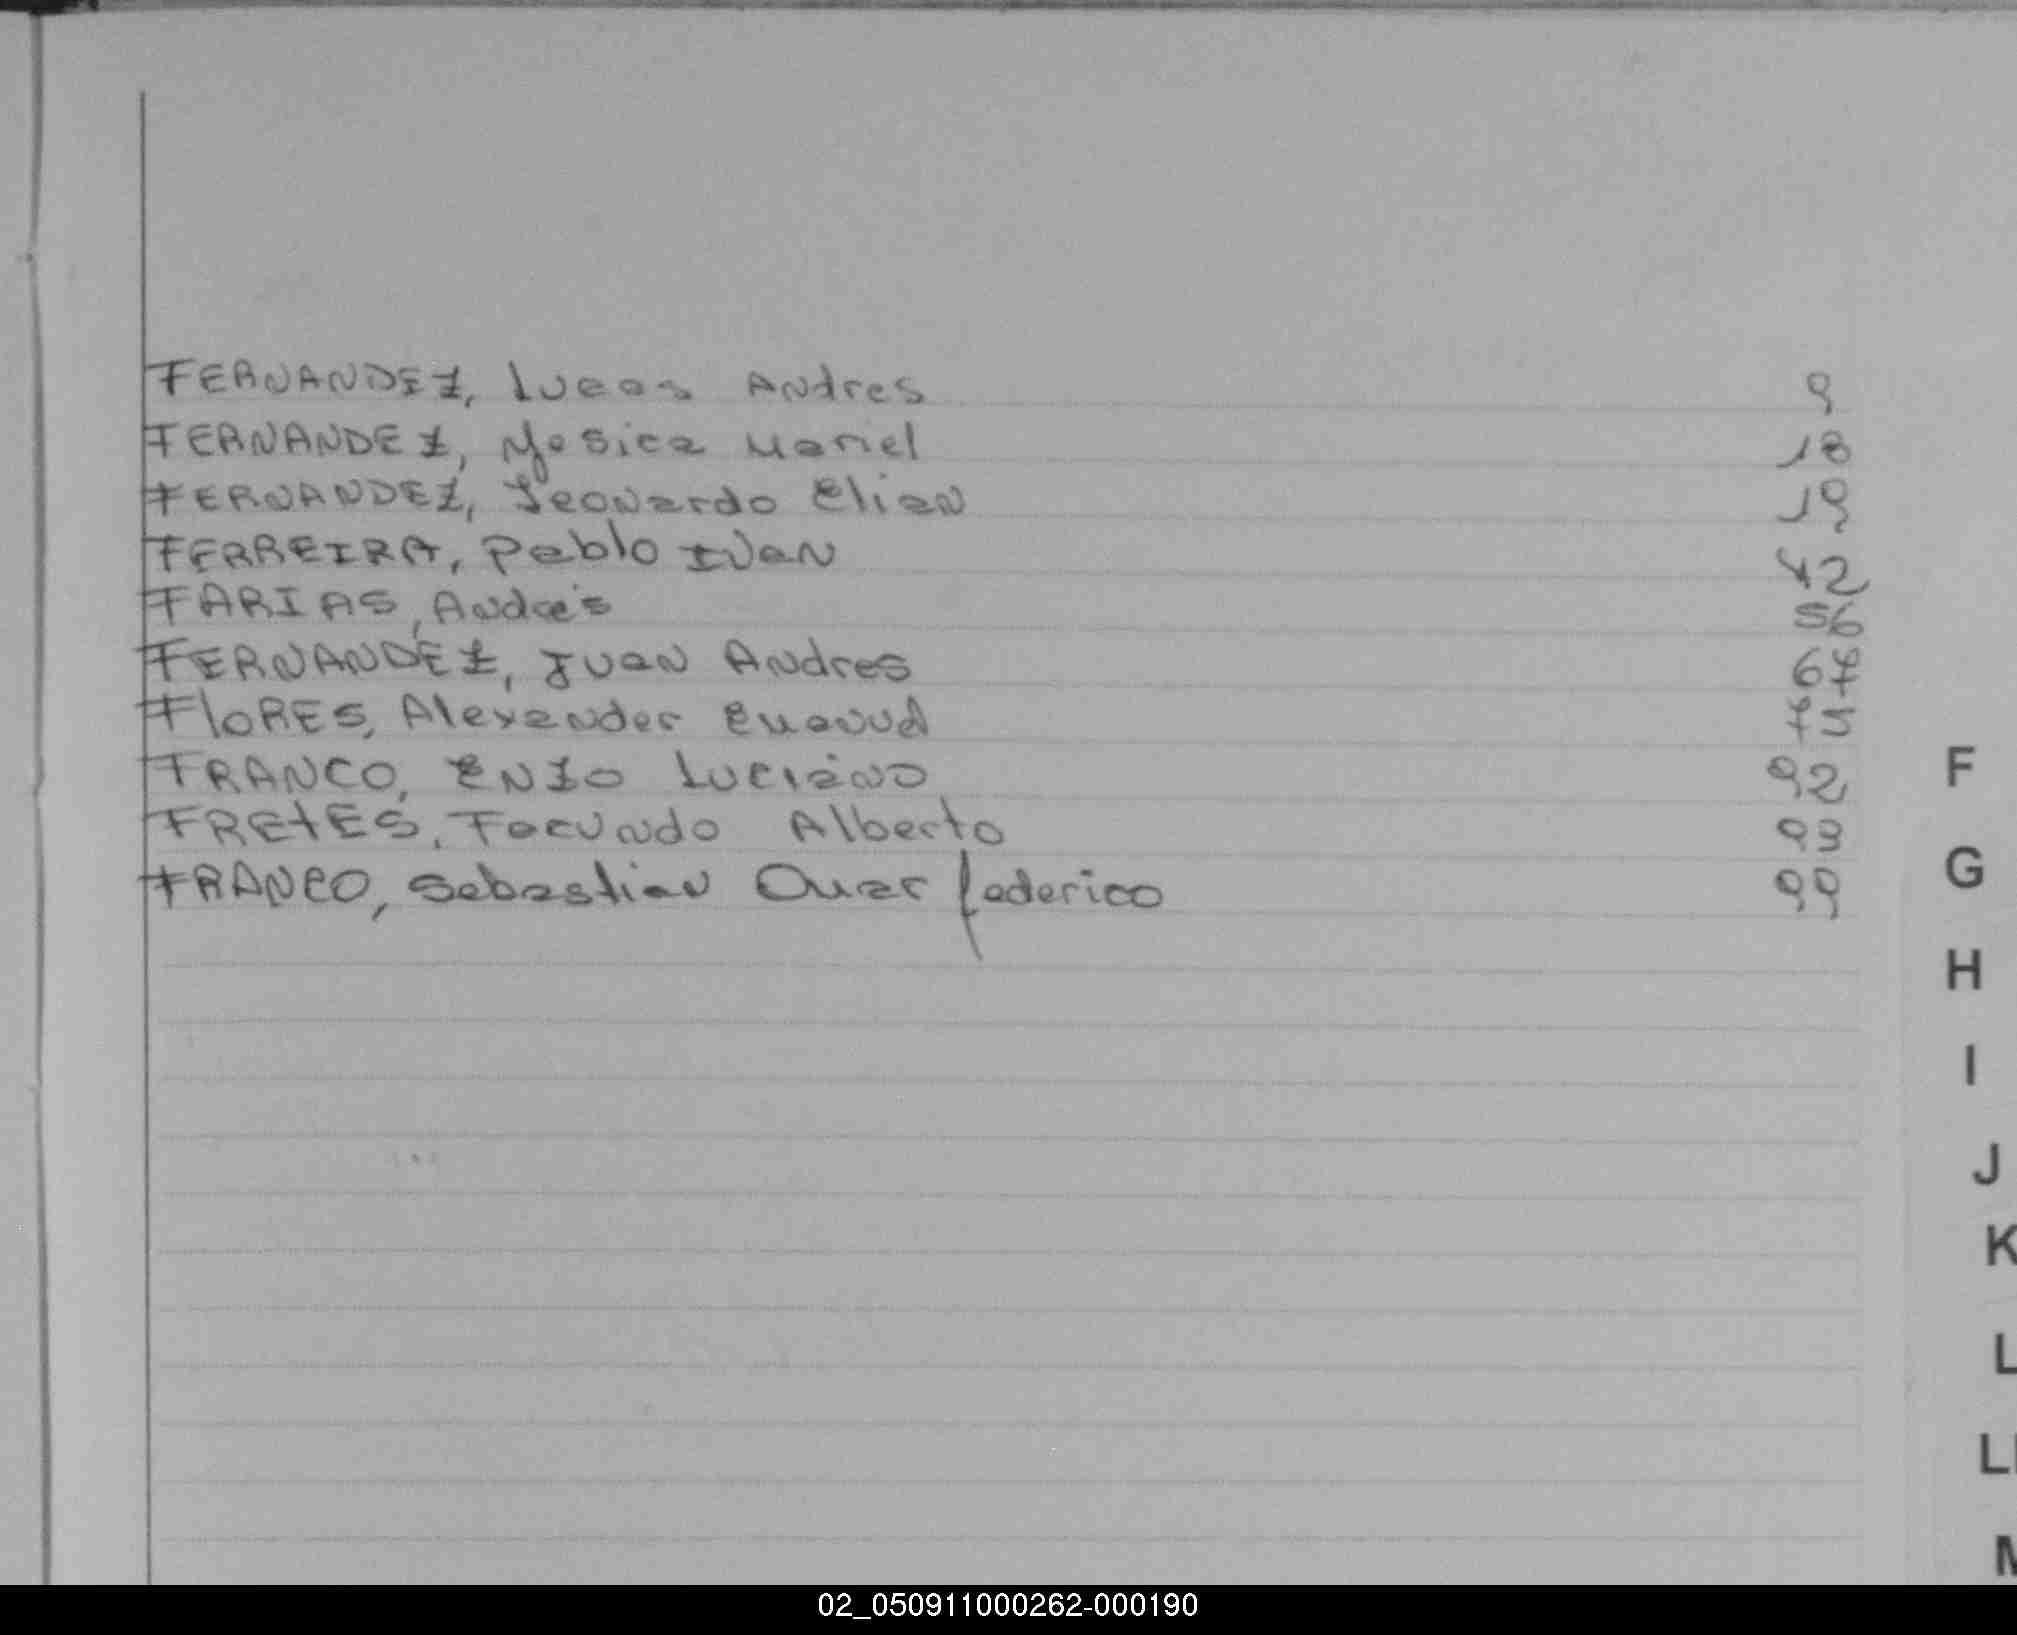 FERNANDEZ, Lucas Andres 9
FERNANDEZ, Yesica Mariel 18
FERNANDEZ, Leonardo Elian 19
FERREIRA, Pablo Ivan 42
FARIAS, Andrés 56
FERNANDEZ, Juan Andres 67
FlORES, Alexander Emanuel 75
FRANCO, ENZO Luciano 92
FREtES, Facundo Alberto 93
FRANCO, Sebastian Omar federico 99
F
G
H
I
J
K
L
LL
M
02_050911000262-000190